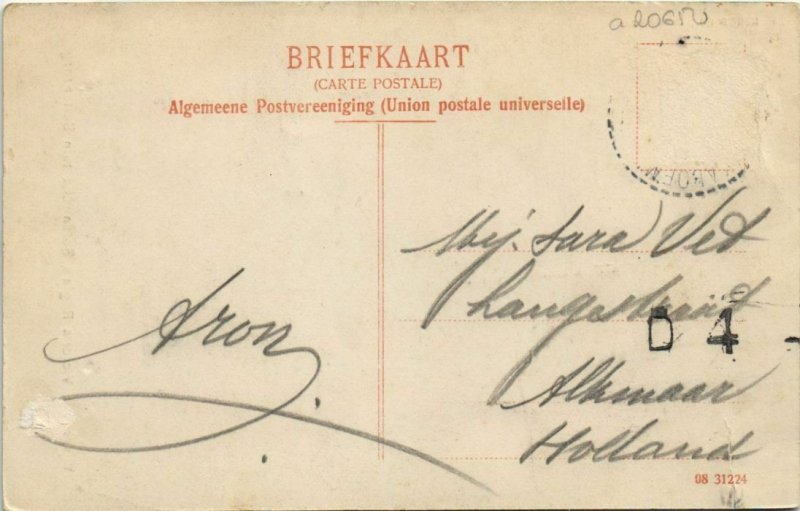 a 20617
BRIEFKAART
(CARTE POSTALE)
Algemeene Postvereeniging (Union postale universelle)
Aron.
Mej. Sara Vet
Langestraat
D 4
Alkmaar
Holland
08 31224